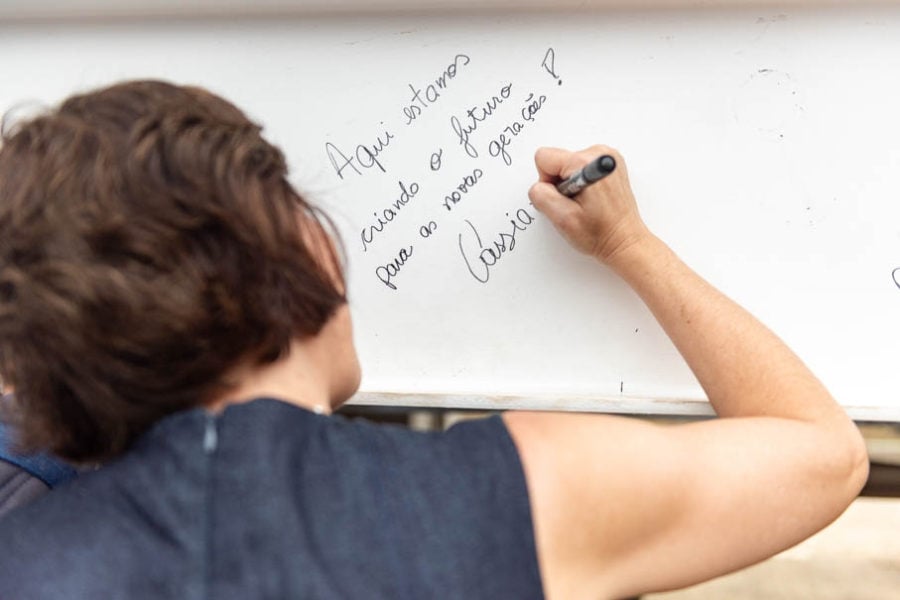 Aqui estamos
criando o futuro
para as novas gerações!
Cassia